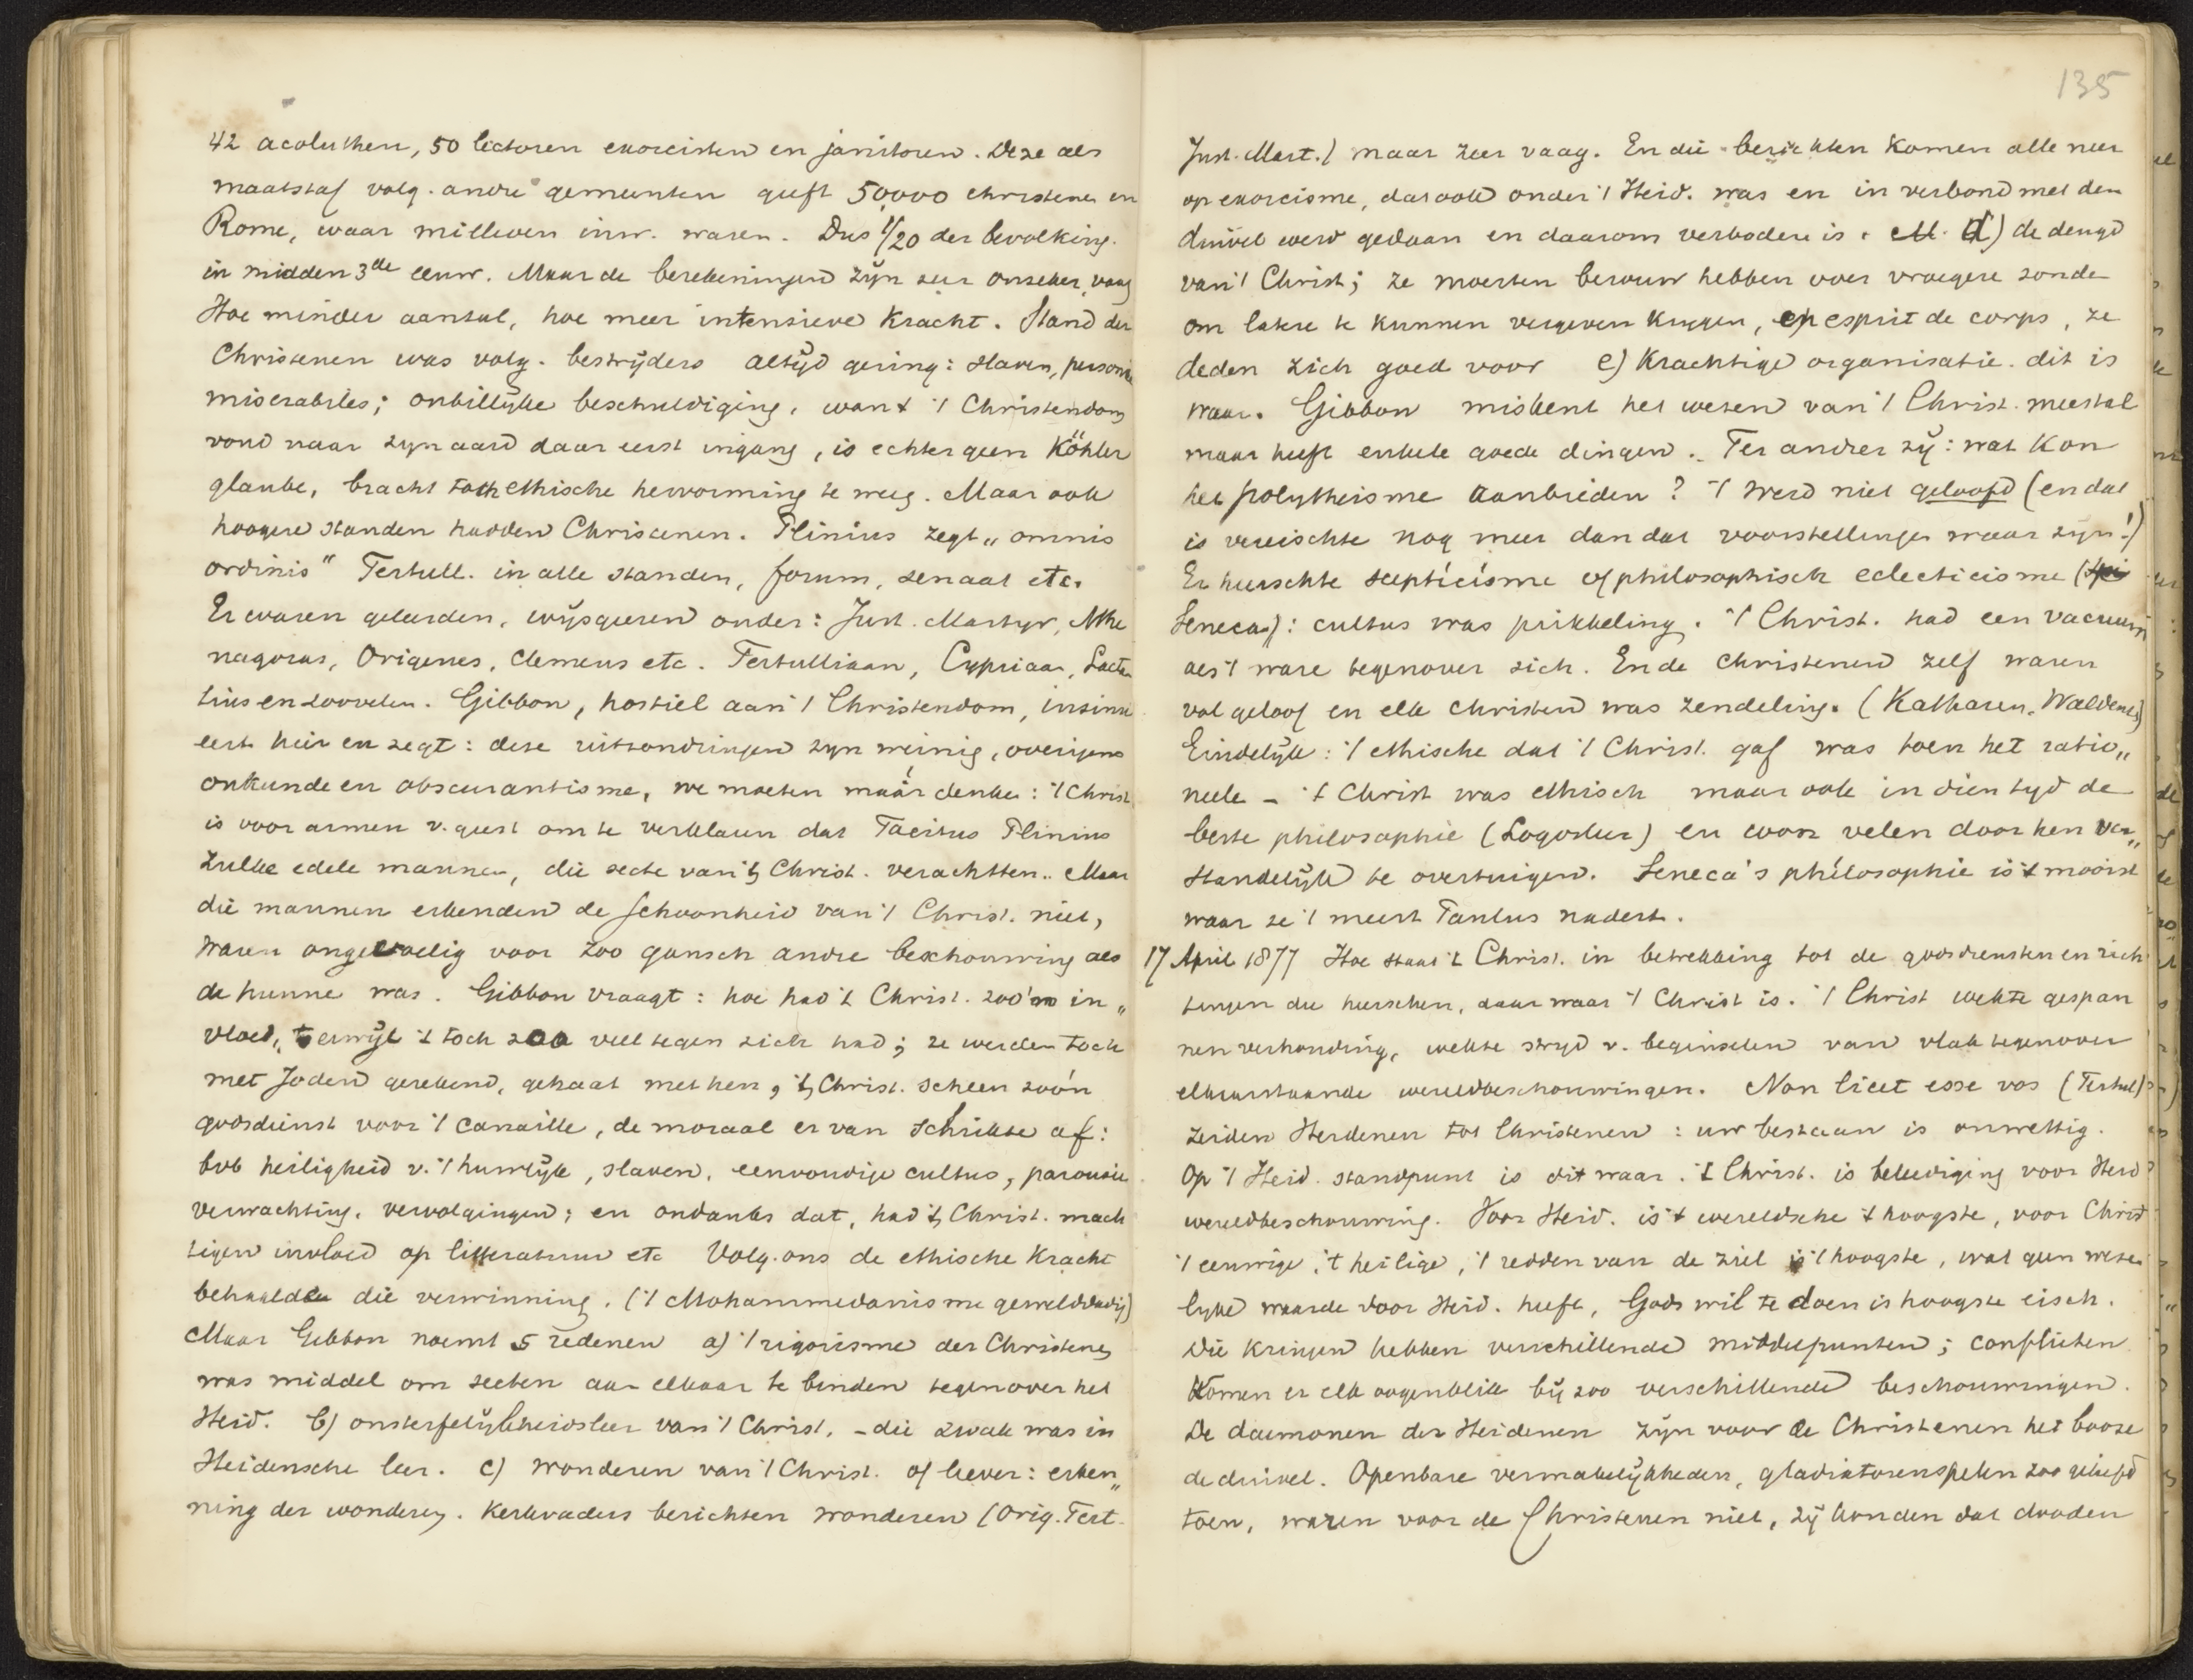 42 acoluthen, 50 lectoren exorcisten en janitoren. Deze als
maatstaf volg. andre gemeenten geeft 50,000 christenen in
Rome, waar millioen inw. waren. Dus 1/20 der bevolking.
in midden 3de eeuw. Maar de berekeningen zijn zeer onzeker, vaag
Hoe minder aantal, hoe meer intensieve kracht. Stand der
Christenen was volg. bestrijders altijd gering: slaven, personae
miserabiles; onbillijke beschuldiging, want 't Christendom
vond naar zijn aard daar eerst ingang, is echter geen Köhler
glaube, bracht toch ethische hervorming te weeg. Maar ook
hoogere standen hadden Christenen. Plinius zegt „omnis
ordinis" Tertull. in alle standen, forum, senaat etc.
Er waren geleerden, wijsgeren onder: Just. Martyr, Athe
nagoras, Origenes, Clemens etc. Tertulliaan, Cypriaan, Lactan
tius en zoovelen. Gibbon, hostiel aan 't Christendom, insinu
eert hier en zegt: deze uitzonderingen zijn weinig, overigens
onkunde en obscurantisme, we moeten máár denken: 't Christ
is voor armen v. geest om te verklaren dat Tacitus Plinius
zulke edele mannen, die secte van 't Christ. verachtten. Maar
die mannen erkenden de schoonheid van 't Christ. niet,
waren ongevoelig voor zoo gansch andre beschouwing als
de hunne was. Gibbon vraagt: hoe had 't Christ. zoo'n in„
vloed, terwijl 't toch zoo veel tegen zich had; ze werden toch
met Joden gerekend, gehaat met hen, 't Christ. scheen zoo'n
godsdienst voor 't canaille, de moraal er van schrikte af:
bvb heiligheid v. 't huwlijk, slaven, eenvoudige cultus, parousie
verwachting, vervolgingen; en ondanks dat, had 't Christ. mach
tigen invloed op litteratuur etc Volg. ons de ethische kracht
behaalde die verwinning. ('t Mohammedanisme gewelddadig)
Maar Gibbon noemt 5 redenen a) 't rigorisme der Christenen
was middel om secten aan elkaar te binden tegenover het
Heid. b) onsterfelijkheidsleer van 't Christ. - die zwak was in
Heidensche leer. c) wonderen van 't Christ. of liever: erken„
ning der wonderen. Kerkvaders berichten wonderen (Orig. Tert.
135
Just. Mart.) maar zeer vaag. En die berichten komen alle neer
op exorcisme, dat ook onder 't Heid. was en in verbond met den
duivel werd gedaan en daarom verboden is. d) de deugd
van 't Christ; ze moesten berouw hebben over vroegere zonde
om latere te kunnen vergeven krygen, en esprit de corps, ze
deden zich goed voor e) Krachtige organisatie. dit is
waar. Gibbon miskent het wezen van 't Christ. meestal
maar heeft enkele goede dingen. Ter andrer zij: wat kon
het polytheisme aanbieden? 't werd niet geloofd (en dat
is vereischte nog meer dan dat voorstellingen waar zijn!)
Er heerschte scepticisme of philosophisch eclecticisme (
Seneca): cultus was prikkeling. 't Christ. had een vacuum
als 't ware tegenover zich. En de christenen zelf waren
vol geloof en elk christen was zendeling. (Katharen, Waldens)
Eindelijk: 't ethische dat 't Christ. gaf was toen het ratio„
neele - 't Christ was ethisch maar ook in dien tyd de
beste philosophie (Logosleer) en voor velen door hen ver„
standelijk te overtuigen. Seneca's philosophie is 't mooist
waar ze 't meest Paulus nadert.
17 April 1877 Hoe staat 't Christ. in betrekking tot de godsdiensten en rich
tingen die heerschen, daar waar 't Christ is. 't Christ wekte gespan
nen verhouding, wekte stryd v. beginselen van vlak tegenover
elkaarstaande wereldbeschouwingen. Non licet esse vos (Tertul)
zeiden Heidenen tot Christenen: uw bestaan is onwettig.
Op 't Heid. standpunt is dit waar. 't Christ. is beleediging voor Heid
wereldbeschouwing. Voor Heid. is 't wereldsche 't hoogste, voor Christ
't eeuwige, 't heilige, 't redden van de ziel is 't hoogste, wat geen weze
lyke waarde voor Heid. heeft, Gods wil te doen is hoogste eisch.
Die kringen hebben verschillende middelpunten; conflicten
komen er elk oogenblik bij zoo verschillende beschouwingen.
De daemonen der Heidenen zijn voor de Christenen het booze
de duivel. Openbare vermakelijkheden, gladiatorenspelen zoo geliefd
toen, waren voor de Christenen niet, zij konden dat dooden